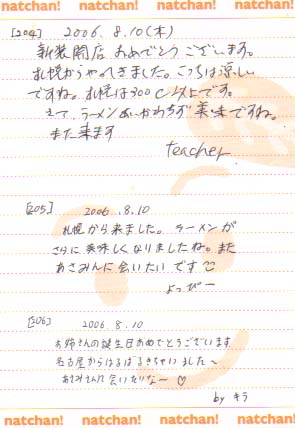 natchan! natchan! natchan! natchan!
[204] 2006. 8.10(木)
新装開店 おめでとうございます。
札幌からやってきました。こっちは涼しい
ですね。札幌は300C以上です。
さて、ラーメンあいかわらず美味ですね。
また来ます
teacher
[205] 2006.8.10
札幌から来ました。ラーメンが
さらに美味しくなりましたね。また
あさみんに会いたいです
よっぴー
[206] 2006.8.10
お姉さんの誕生日おめでとうございます
名古屋からはるばるきちゃいました〜
あさみさんに会いたいな〜♡
by キラ
natchan! natchan! natchan! natchan!